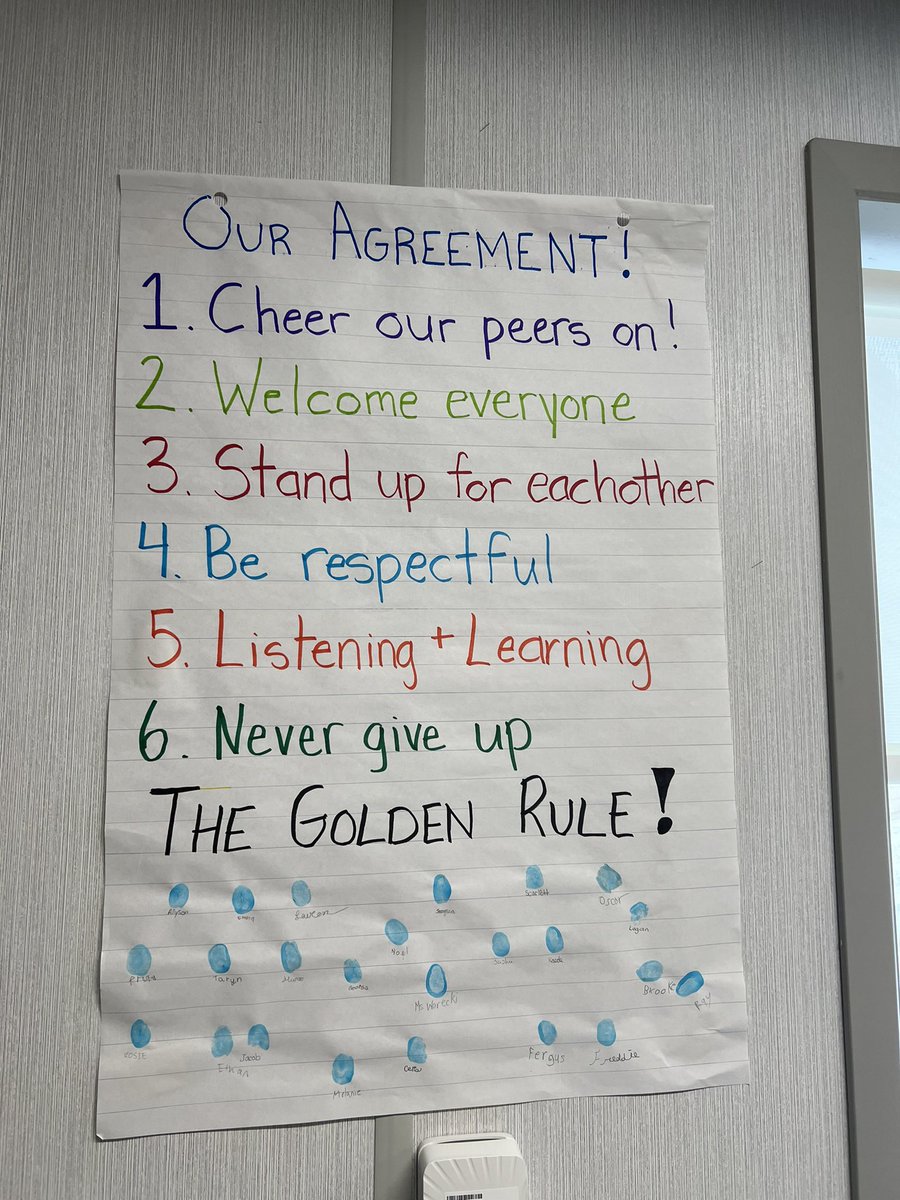 OUR AGREEMENT!
1. Cheer our peers on!
2. Welcome everyone
3. Stand up for eachother
4. Be respectful
5. Listening + Learning
6. Never give up
THE GOLDEN RULE!
Allyson Emma Lauren Scarlett Oscar
Noel
Taryn Brooke Ray
Ms. Warecki
ROSIE Ethan Jacob Fergus Freddie
Melanie